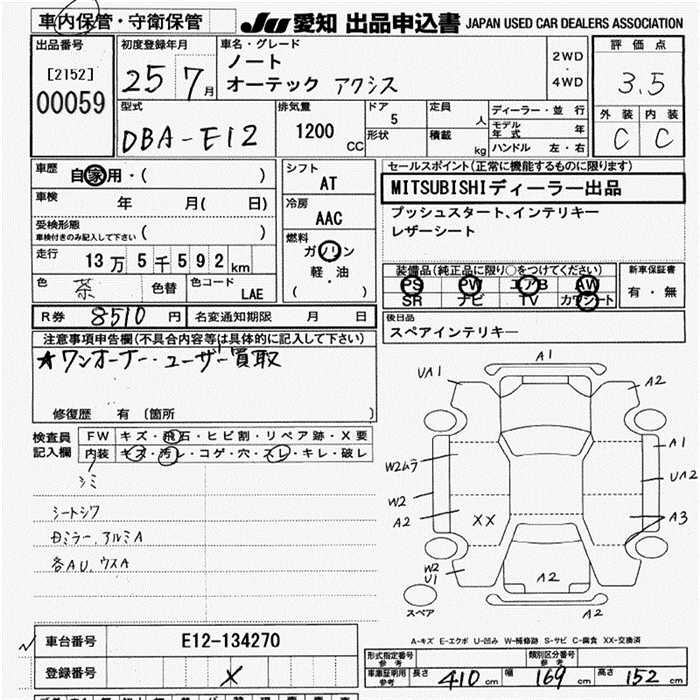 車内保管・守衛保管
JU 愛知 出品申込書 JAPAN USED CAR DEALERS ASSOCIATION
出品番号
[2152]
00059
初度登録年月
25 7月
車名・グレード
ノート
オーテック アクシス
2WD
・
4WD
評価点
3.5
外装 内装
C C
型式
DBA-E12
排気量
1200
CC
ドア
5
形状
定員
人
積載
kg
ディーラー・並行
モデル年式 年式
ハンドル 左・右
車歴
自家用・( )
車検 年 月( 日)
受検形態
車検付きのみ記入して下さい ( )
走行 13万5千592km
色 茶 色替 色コード LAE
シフト
AT
冷房
AAC
燃料
ガソリン
軽・油
( )
セールスポイント(正常に機能するものに限ります)
MITSUBISHIディーラー出品
プッシュスタート、インテリキー
レザーシート
装備品(純正品に限り○をつけてください)
PS PW エアB AW
SR ナビ TV カワシート
新車保証書
有・無
R券 8510 円 名変通知期限 月 日
後日品
スペアインテリキー
注意事項申告欄(不具合内容等は具体的に記入して下さい)
★ワンオーナー・ユーザー買取
修復歴 有 〔箇所 〕
検査員
記入欄
FW キズ・飛石・ヒビ割・リペア跡・X要
内装 キズ・汚レ・コゲ・穴・スレ・キレ・破レ
シミ
シートシワ
ミラー、アルミA
各AU、ウスA
A1
UA1
A2
A1
W2ムラ
UA2
W2
A2
XX
A3
W2
U1
A2
スペア
A2
A-キズ E-エクボ U-凹み W-補修跡 S-サビ C-腐食 XX-交換済
車台番号 E12-134270
登録番号 X
形式指定番号
参考
類別区分番号
参考
車庫証明用
参考
長さ 410cm 幅 169cm 高さ 152cm